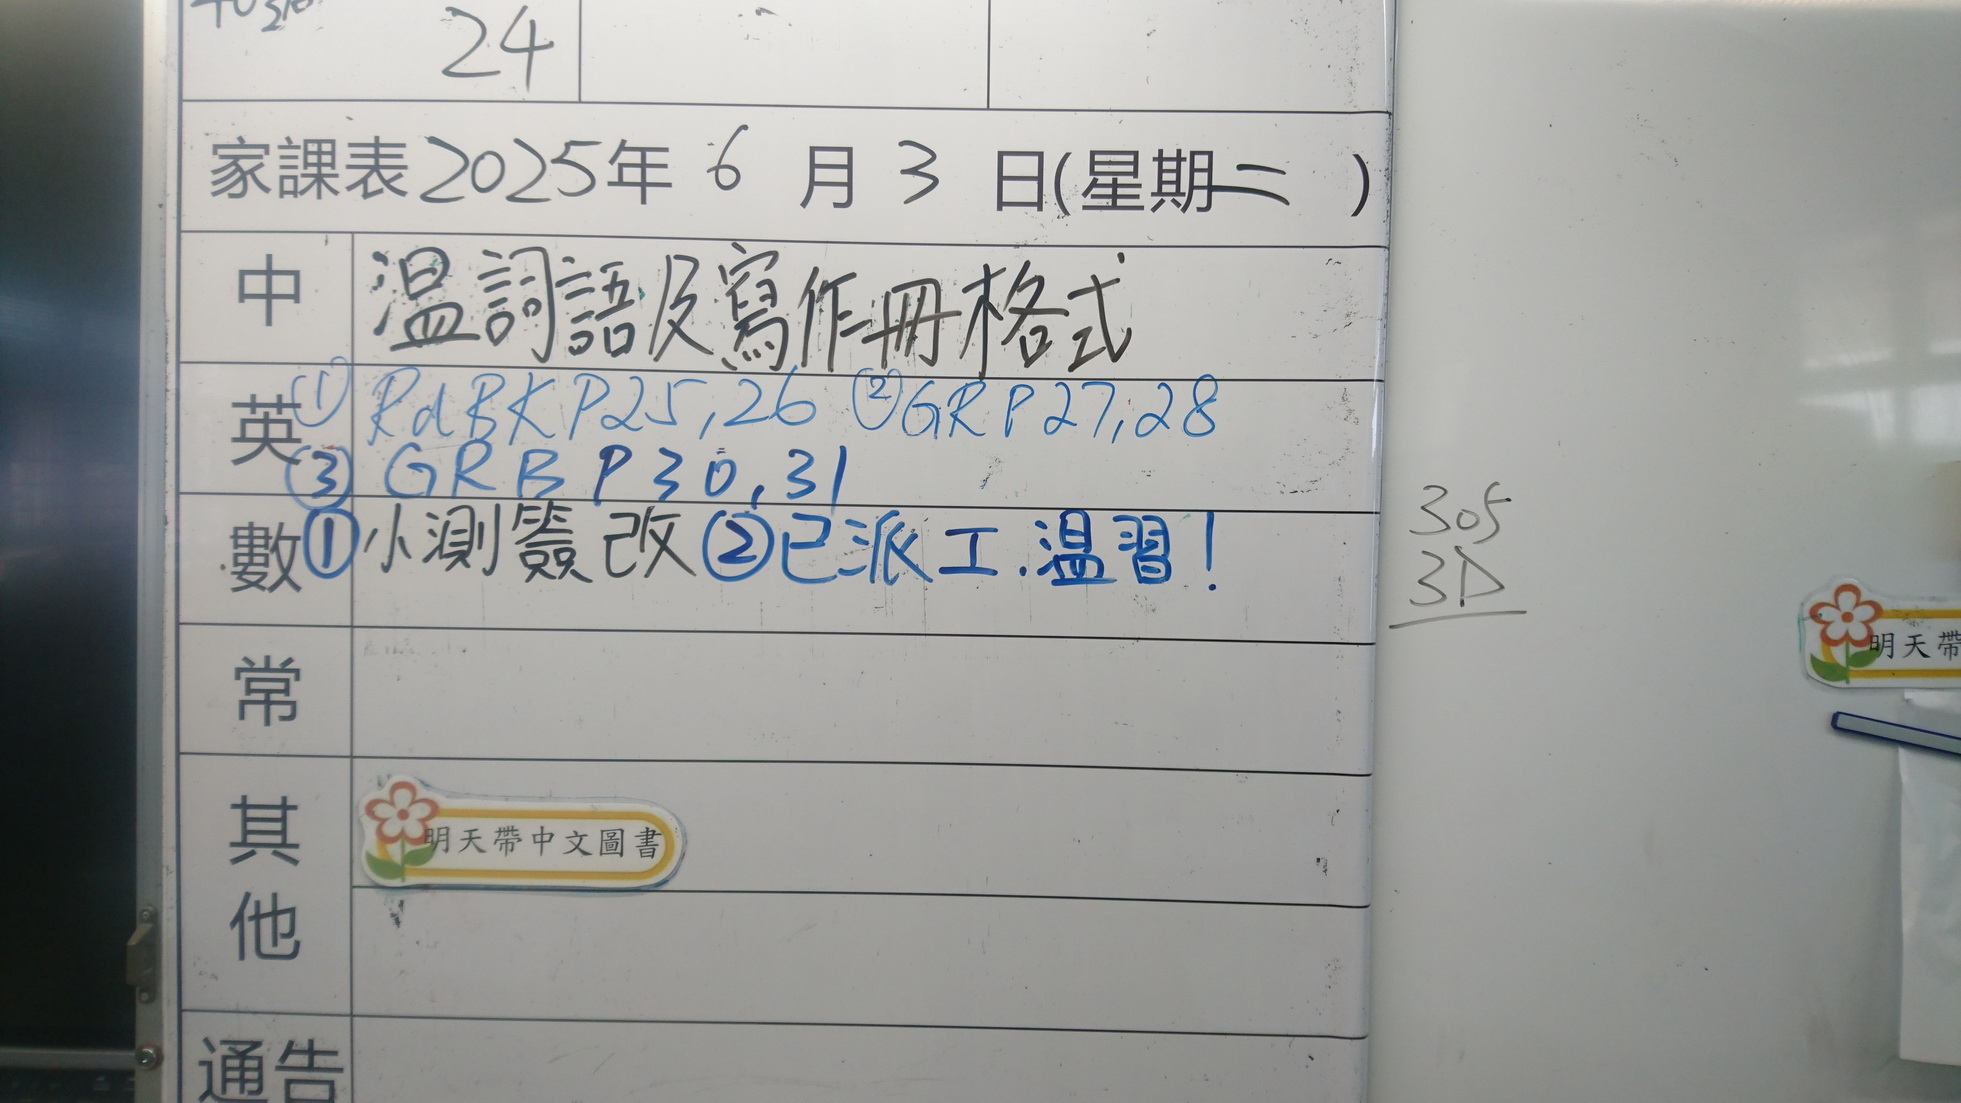 24
家課表2025年 6 月 3 日(星期二 )
中 温詞語及寫作冊格式
英 ① RdBK P25,26 ②GR P27,28
③ GRB P30,31
數 ①小測簽改②已派工.温習!
305
3D
常
明天帶
其他
明天帶中文圖書
通告